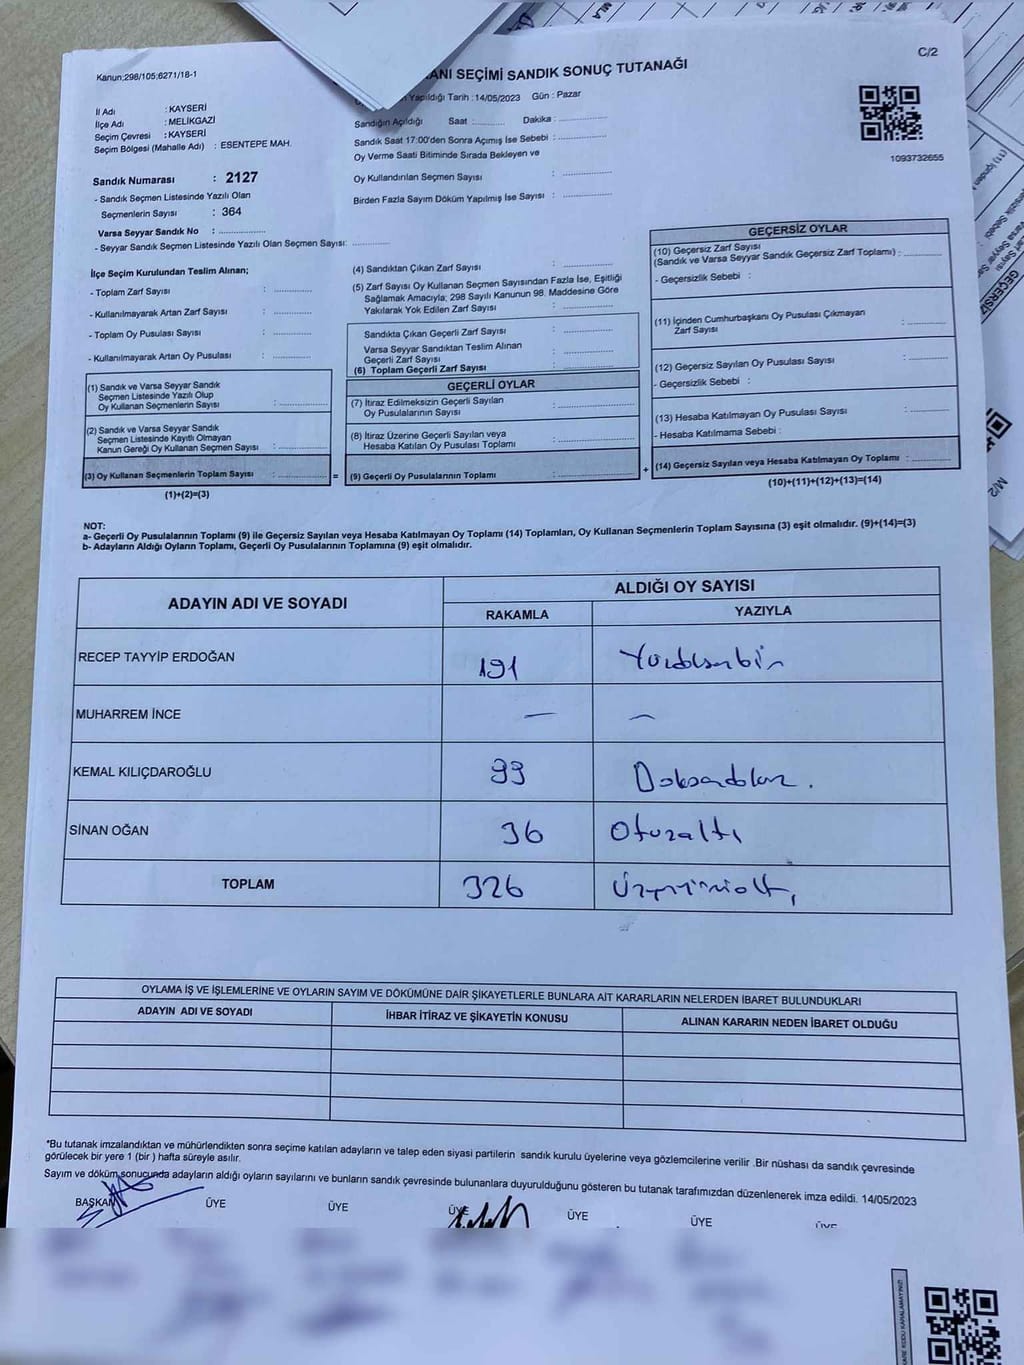 Kanun;298/105;6271/18-1
ANI SEÇİMİ SANDIK SONUÇ TUTANAĞI
C/2
Yapıldığı Tarih :14/05/2023 Gün : Pazar
İl Adı : KAYSERİ
İlçe Adı : MELİKGAZİ
Seçim Çevresi : KAYSERİ
Seçim Bölgesi (Mahalle Adı) : ESENTEPE MAH.
Sandık Numarası : 2127
- Sandık Seçmen Listesinde Yazılı Olan
Seçmenlerin Sayısı : 364
Varsa Seyyar Sandık No : ....................
- Seyyar Sandık Seçmen Listesinde Yazılı Olan Seçmen Sayısı: ............
Sandığın Açıldığı Saat : .......... Dakika : ................
Sandık Saat 17:00'den Sonra Açımış İse Sebebi : ................
Oy Verme Saati Bitiminde Sırada Bekleyen ve
Oy Kullandırılan Seçmen Sayısı : ................
Birden Fazla Sayım Döküm Yapılmış İse Sayısı : ................
1093732655
İlçe Seçim Kurulundan Teslim Alınan;
- Toplam Zarf Sayısı : ............
- Kullanılmayarak Artan Zarf Sayısı : ............
- Toplam Oy Pusulası Sayısı : ............
- Kullanılmayarak Artan Oy Pusulası : ............
(1) Sandık ve Varsa Seyyar Sandık
Seçmen Listesinde Yazılı Olup
Oy Kullanan Seçmenlerin Sayısı : ................
(2) Sandık ve Varsa Seyyar Sandık
Seçmen Listesinde Kayıtlı Olmayan
Kanun Gereği Oy Kullanan Seçmen Sayısı : ................
(3) Oy Kullanan Seçmenlerin Toplam Sayısı : ................ =
(1)+(2)=(3)
(4) Sandıktan Çıkan Zarf Sayısı : ................
(5) Zarf Sayısı Oy Kullanan Seçmen Sayısından Fazla İse, Eşitliği
Sağlamak Amacıyla; 298 Sayılı Kanunun 98. Maddesine Göre
Yakılarak Yok Edilen Zarf Sayısı : ................
Sandıkta Çıkan Geçerli Zarf Sayısı : ................
Varsa Seyyar Sandıktan Teslim Alınan
Geçerli Zarf Sayısı : ................
(6) Toplam Geçerli Zarf Sayısı : ................
GEÇERLİ OYLAR
(7) İtiraz Edilmeksizin Geçerli Sayılan
Oy Pusulalarının Sayısı : ................
(8) İtiraz Üzerine Geçerli Sayılan veya
Hesaba Katılan Oy Pusulası Toplamı : ................
(9) Geçerli Oy Pusulalarının Toplamı : ................ +
GEÇERSİZ OYLAR
(10) Geçersiz Zarf Sayısı
(Sandık ve Varsa Seyyar Sandık Geçersiz Zarf Toplamı) : ............
- Geçersizlik Sebebi :
(11) İçinden Cumhurbaşkanı Oy Pusulası Çıkmayan
Zarf Sayısı : ............
(12) Geçersiz Sayılan Oy Pusulası Sayısı : ............
- Geçersizlik Sebebi :
(13) Hesaba Katılmayan Oy Pusulası Sayısı : ............
- Hesaba Katılmama Sebebi :
(14) Geçersiz Sayılan veya Hesaba Katılmayan Oy Toplamı : ............
(10)+(11)+(12)+(13)=(14)
NOT:
a- Geçerli Oy Pusulalarının Toplamı (9) ile Geçersiz Sayılan veya Hesaba Katılmayan Oy Toplamı (14) Toplamları, Oy Kullanan Seçmenlerin Toplam Sayısına (3) eşit olmalıdır. (9)+(14)=(3)
b- Adayların Aldığı Oyların Toplamı, Geçerli Oy Pusulalarının Toplamına (9) eşit olmalıdır.
ADAYIN ADI VE SOYADI
ALDIĞI OY SAYISI
RAKAMLA YAZIYLA
RECEP TAYYİP ERDOĞAN 191
MUHARREM İNCE — —
KEMAL KILIÇDAROĞLU 99
SİNAN OĞAN 36 Otuzaltı
TOPLAM 326
OYLAMA İŞ VE İŞLEMLERİNE VE OYLARIN SAYIM VE DÖKÜMÜNE DAİR ŞİKAYETLERLE BUNLARA AİT KARARLARIN NELERDEN İBARET BULUNDUKLARI
ADAYIN ADI VE SOYADI İHBAR İTİRAZ VE ŞİKAYETİN KONUSU ALINAN KARARIN NEDEN İBARET OLDUĞU
*Bu tutanak imzalandıktan ve mühürlendikten sonra seçime katılan adayların ve talep eden siyasi partilerin sandık kurulu üyelerine veya gözlemcilerine verilir .Bir nüshası da sandık çevresinde
görülecek bir yere 1 (bir ) hafta süreyle asılır.
Sayım ve döküm sonucunda adayların aldığı oyların sayılarını ve bunların sandık çevresinde bulunanlara duyurulduğunu gösteren bu tutanak tarafımızdan düzenlenerek imza edildi. 14/05/2023
BAŞKAN ÜYE ÜYE ÜYE ÜYE ÜYE ÜYE
M/2